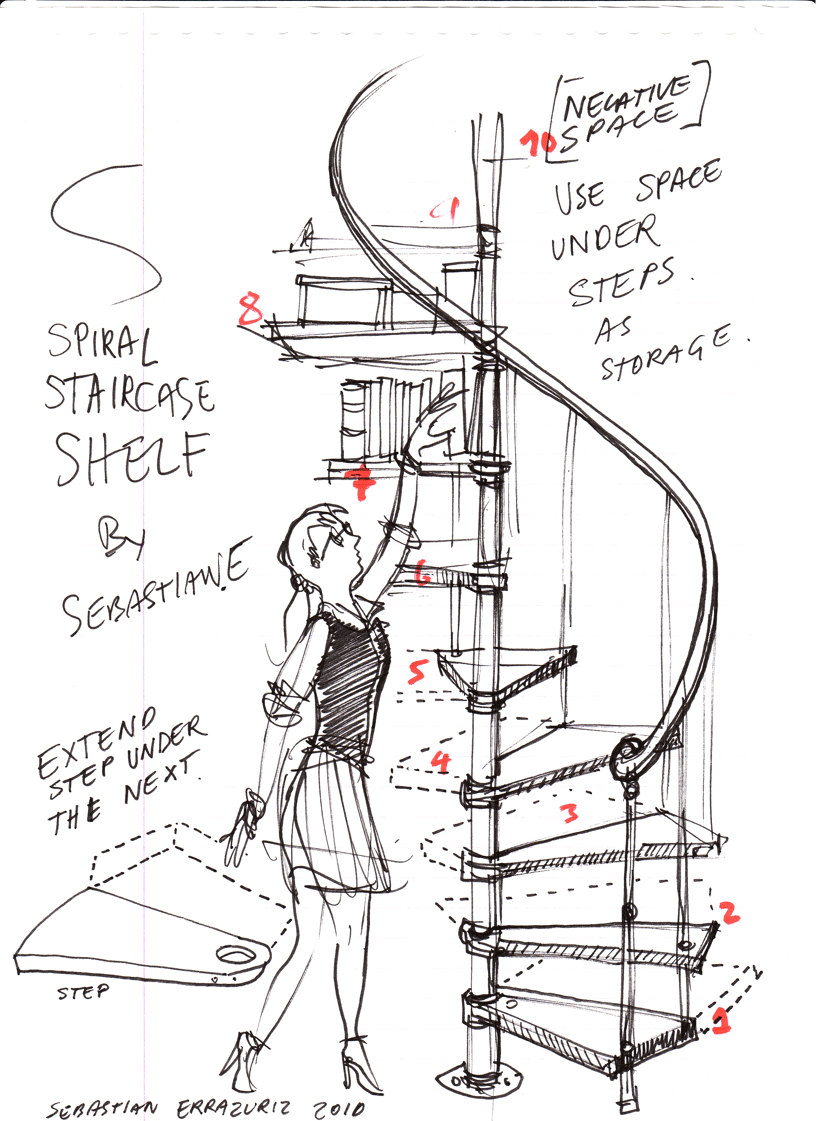 [NEGATIVE
SPACE]
USE SPACE
UNDER
STEPS.
AS
STORAGE.
SPIRAL
STAIRCASE
SHELF
By
SEBASTIAN.E
10
9
8
7
6
5
4
3
2
1
EXTEND
STEP UNDER
THE NEXT.
STEP
SEBASTIAN ERRAZURIZ 2010